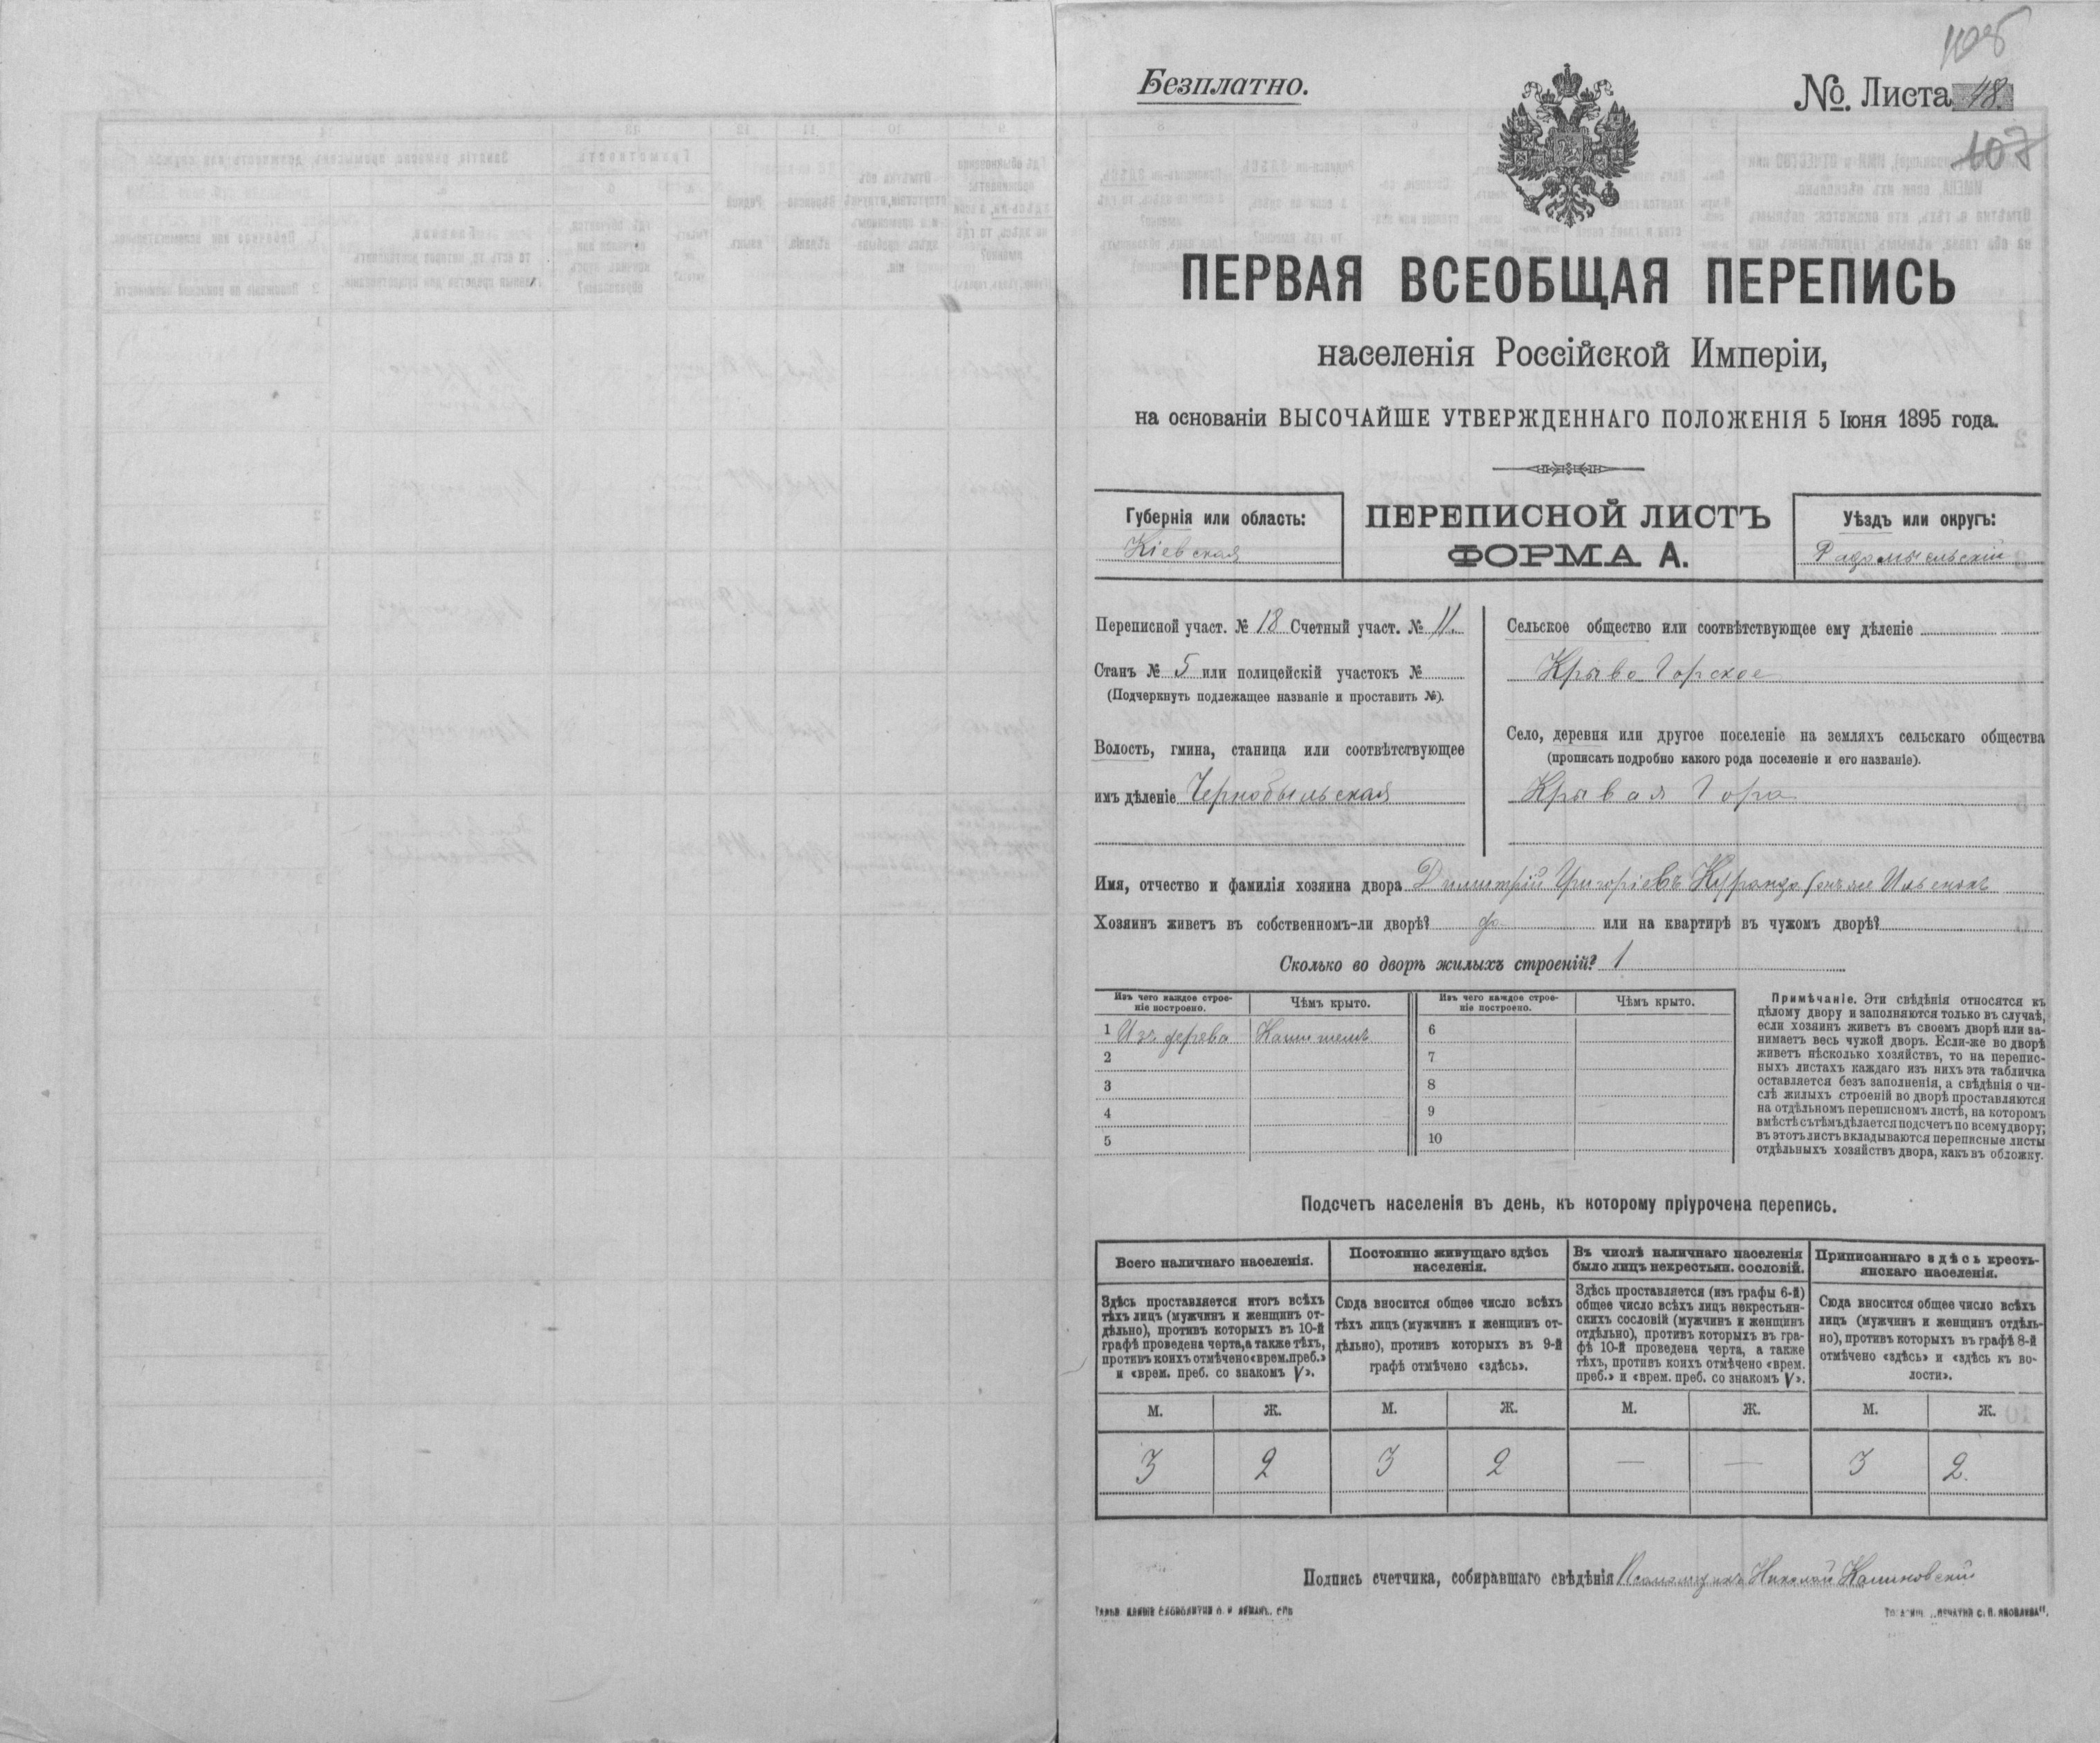 Безплатно.
№. Листа 48.
107
ПЕРВАЯ ВСЕОБЩАЯ ПЕРЕПИСЬ
населенія Россійской Имперіи,
на основаніи ВЫСОЧАЙШЕ УТВЕРЖДЕННАГО ПОЛОЖЕНІЯ 5 Іюня 1895 года.
Губернія или область:
Кіевская
ПЕРЕПИСНОЙ ЛИСТЪ
ФОРМА А.
Уѣздъ или округъ:
Радомысльскій
Переписной участ. № 18 Счетный участ. № 11.
Станъ № 5 или полицейскій участокъ №
(Подчеркнуть подлежащее названіе и проставить №).
Волость, гмина, станица или соотвѣтствующее
имъ дѣленіе Чернобыльская
Сельское общество или соотвѣтствующее ему дѣленіе
Крыво Горское
Село, деревня или другое поселеніе на земляхъ сельскаго общества
(прописать подробно какого рода поселеніе и его названіе).
Крывая Гора
Имя, отчество и фамилія хозяина двора Димитрій Григоріевъ Куранда (онъ же Ильенокъ
Хозяинъ живетъ въ собственномъ-ли дворѣ? да или на квартирѣ въ чужомъ дворѣ?
Сколько во дворѣ жилыхъ строеній? 1
Изъ чего каждое строе-
ніе построено.
Чѣмъ крыто.
Изъ чего каждое строе-
ніе построено.
Чѣмъ крыто.
1 Изъ дерева Камышемъ 6
2 7
3 8
4 9
5 10
Примѣчаніе. Эти свѣдѣнія относятся къ
цѣлому двору и заполняются только въ случаѣ,
если хозяинъ живетъ въ своемъ дворѣ или за-
нимаетъ весь чужой дворъ. Если-же во дворѣ
живетъ нѣсколько хозяйствъ, то на перепис-
ныхъ листахъ каждаго изъ нихъ эта табличка
оставляется безъ заполненія, а свѣдѣнія о чи-
слѣ жилыхъ строеній во дворѣ проставляются
на отдѣльномъ переписномъ листѣ, на которомъ
вмѣстѣ съ тѣмъ дѣлается подсчетъ по всему двору;
въ этотъ листъ вкладываются переписные листы
отдѣльныхъ хозяйствъ двора, какъ въ обложку.
Подсчетъ населенія въ день, къ которому пріурочена перепись.
Всего наличнаго населенія.
Здѣсь проставляется итогъ всѣхъ
тѣхъ лицъ (мужчинъ и женщинъ от-
дѣльно), противъ которыхъ въ 10-й
графѣ проведена черта, а также тѣхъ,
противъ коихъ отмѣчено «врем. преб.»
и «врем. преб. со знакомъ V».
Постоянно живущаго здѣсь
населенія.
Сюда вносится общее число всѣхъ
тѣхъ лицъ (мужчинъ и женщинъ от-
дѣльно), противъ которыхъ въ 9-й
графѣ отмѣчено «здѣсь».
Въ числѣ наличнаго населенія
было лицъ некрестьян. сословій.
Здѣсь проставляется (изъ графы 6-й)
общее число всѣхъ лицъ некрестьян-
скихъ сословій (мужчинъ и женщинъ
отдѣльно), противъ которыхъ въ гра-
фѣ 10-й проведена черта, а также
тѣхъ, противъ коихъ отмѣчено «врем.
преб.» и «врем. преб. со знакомъ V».
Приписаннаго здѣсь кресть-
янскаго населенія.
Сюда вносится общее число всѣхъ
лицъ (мужчинъ и женщинъ отдѣль-
но), противъ которыхъ въ графѣ 8-й
отмѣчено «здѣсь» и «здѣсь къ во-
лости».
М. Ж. М. Ж. М. Ж. М. Ж.
3 2 3 2 — — 3 2.
Подпись счетчика, собиравшаго свѣдѣнія Псаломщикъ Николай Калиновскій